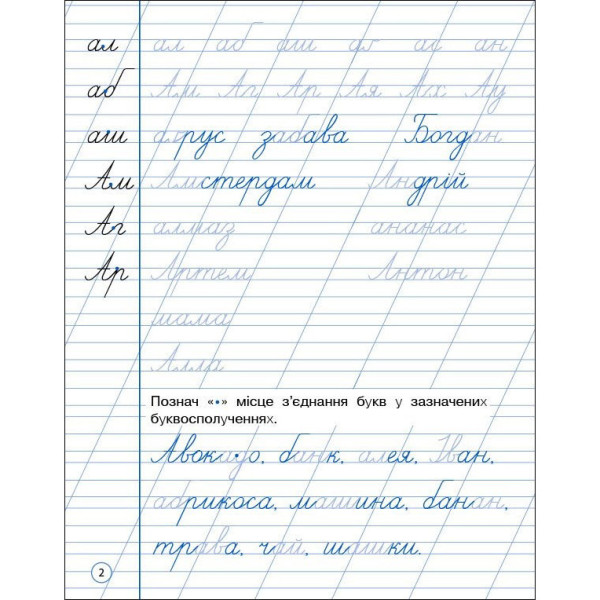 ал ал аб аш ав ас ан
аб Ам Аг Ар Ая Ах Ау
аш арус забава Богдан
Ам Амстердам Андрій
Аг алмаз ананас
Ар Артем Антон
мама
Алла
Познач «•» місце з'єднання букв у зазначених
буквосполученнях.
Авокадо, банк, алея, Іван,
абрикоса, машина, банан,
трава, чай, шашки.
2